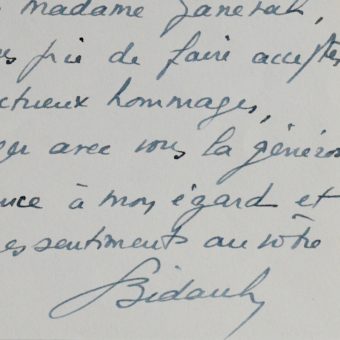 madame Janerah,
prie de faire accepter
ctueux hommages,
ger avec vous la généros
nce à mon égard et
es sentiments au vôtre
Bidault